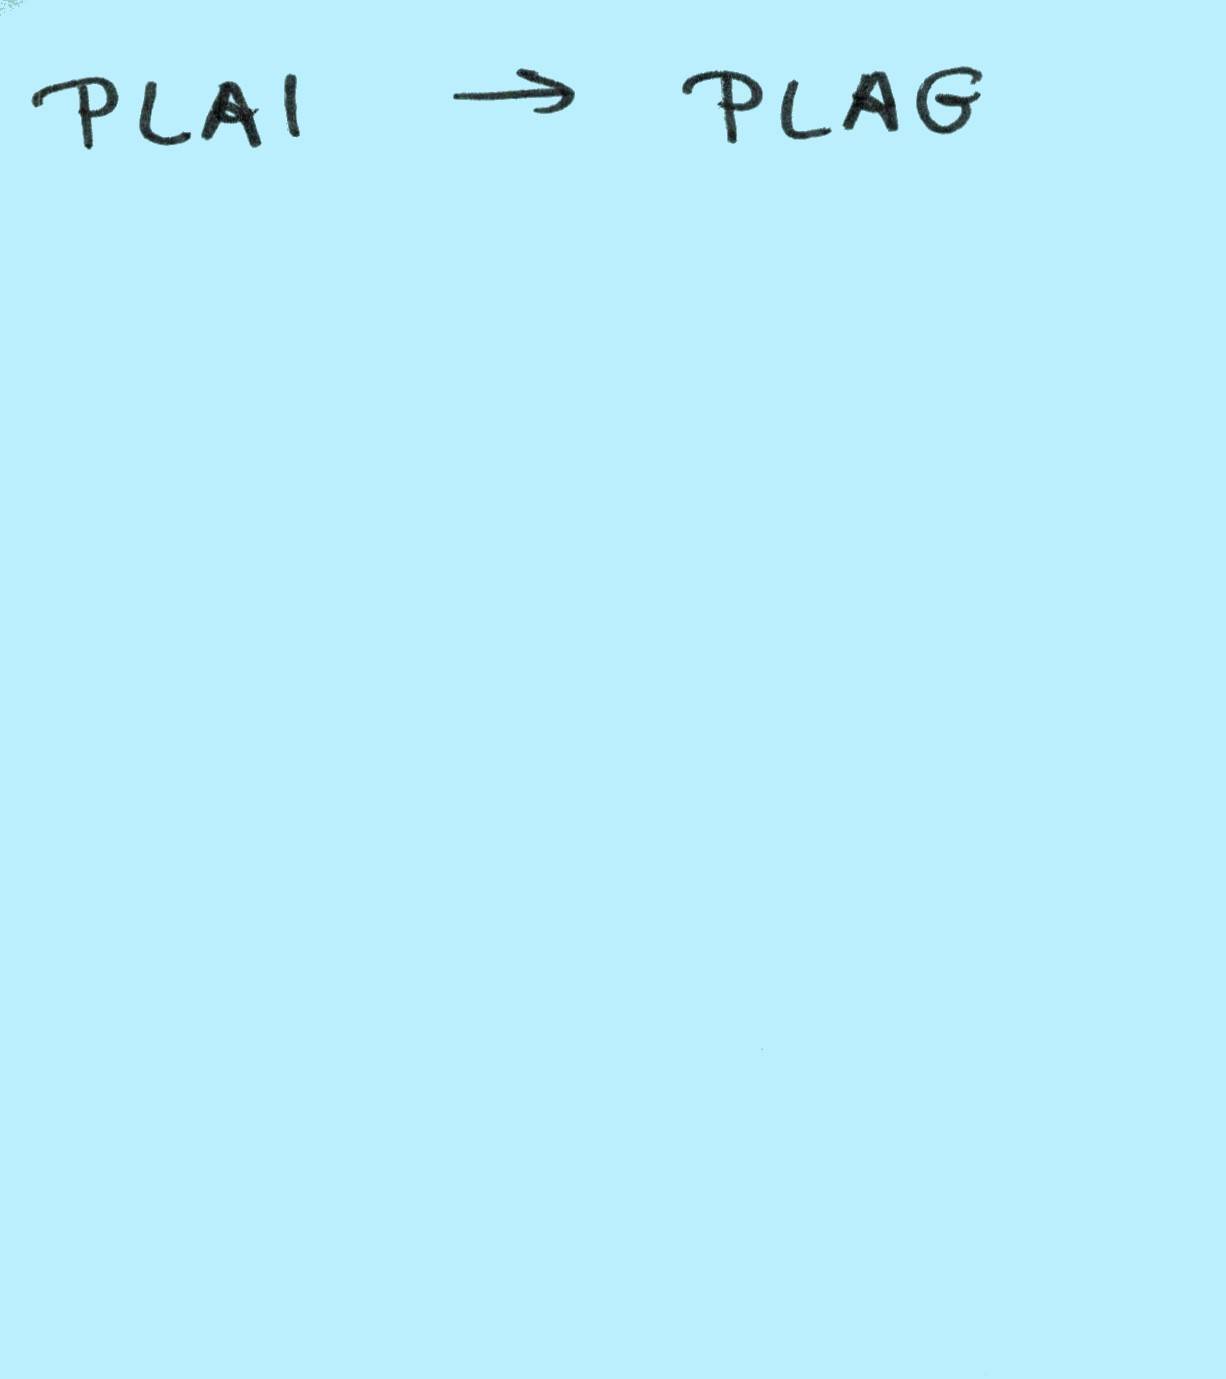 PLAI → PLAG